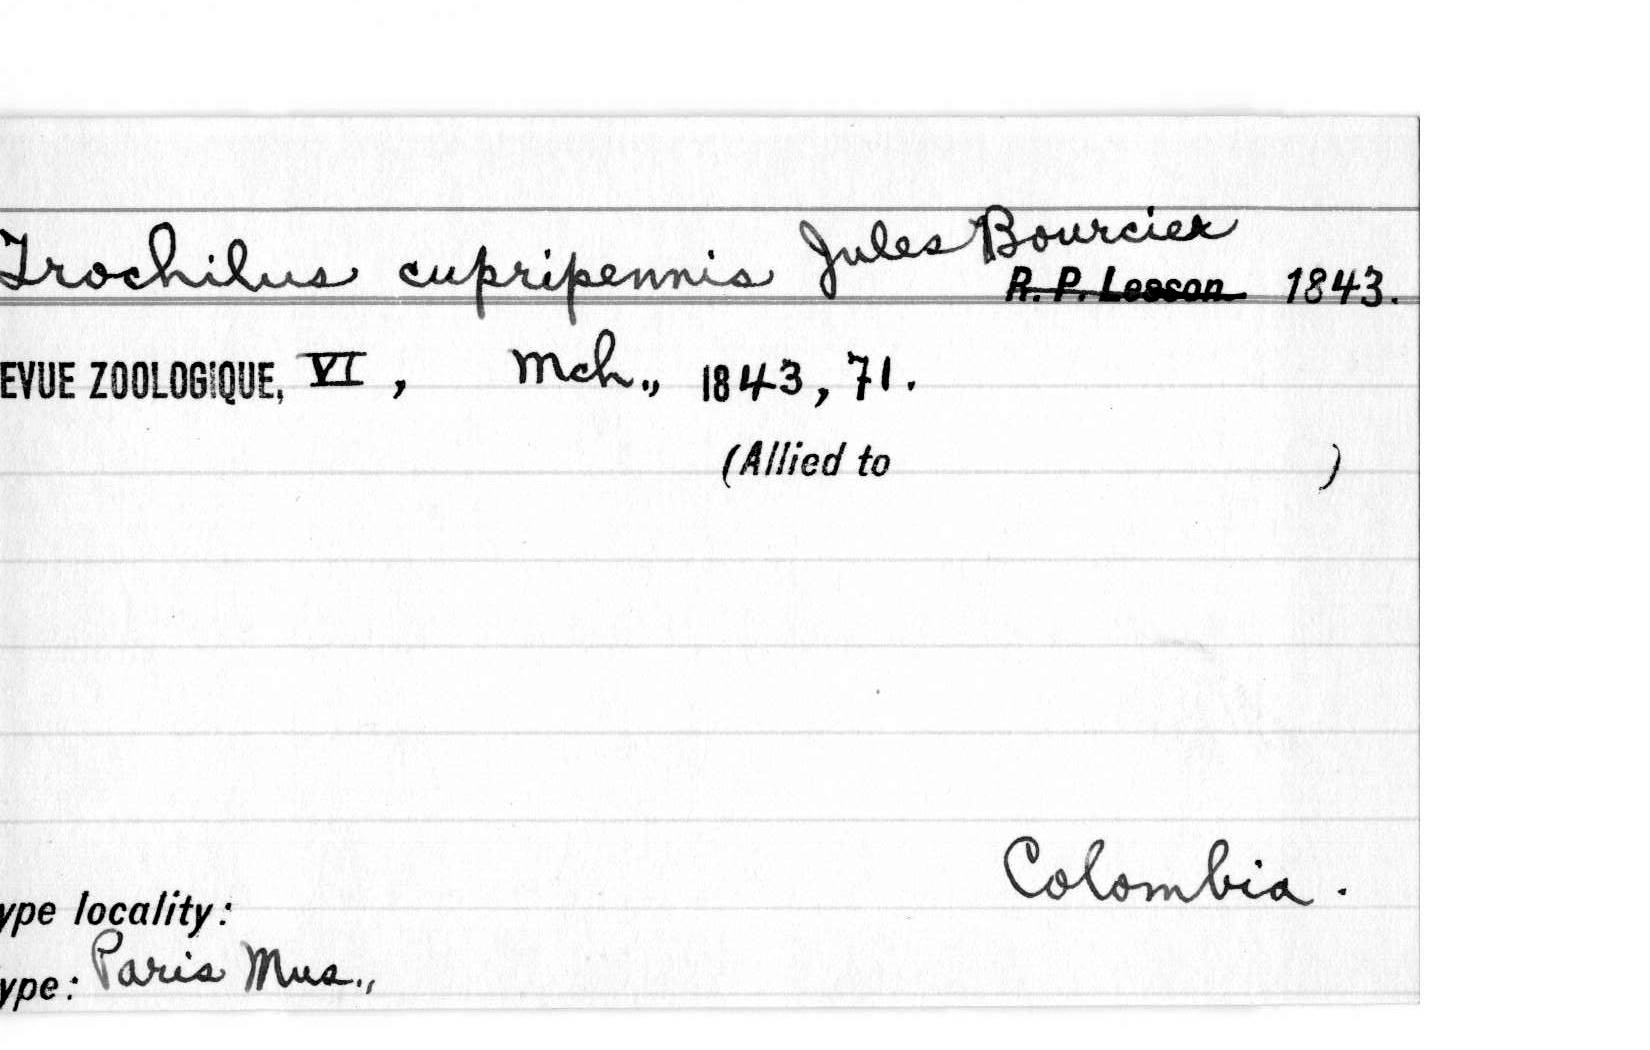 Trochilus cupripennis Jules Bourcier
R. P. Lesson 1843.
EVUE ZOOLOGIQUE, VI, Mch., 1843, 71.
(Allied to )
Colombia.
ype locality:
ype: Paris Mus.,